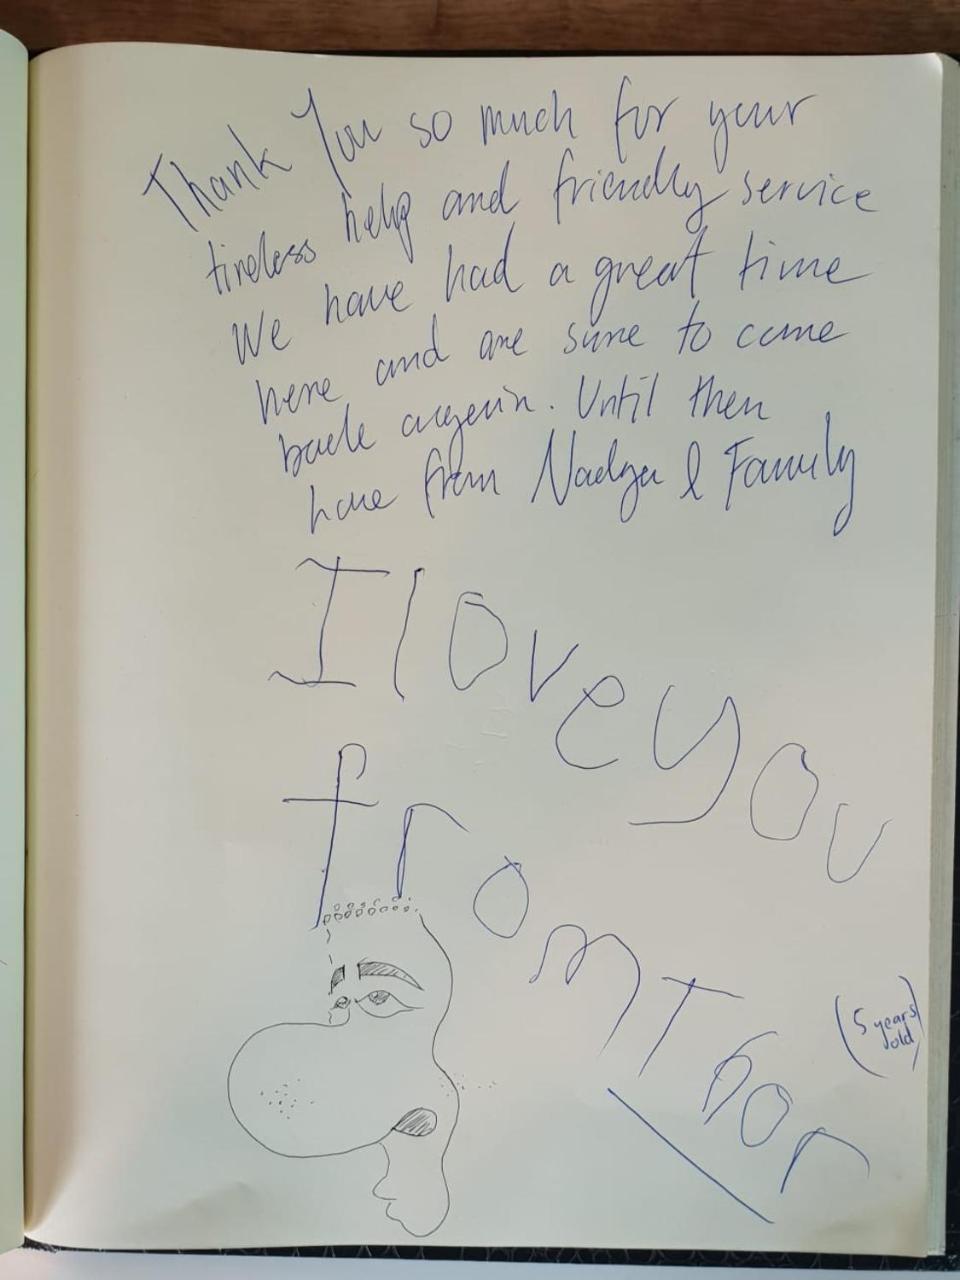 Thank You so much for your
tireless help and friendly service
We have had a great time
here and are sure to come
back again. Until then
from & Family
I love you
from Thor
(5 years
old)